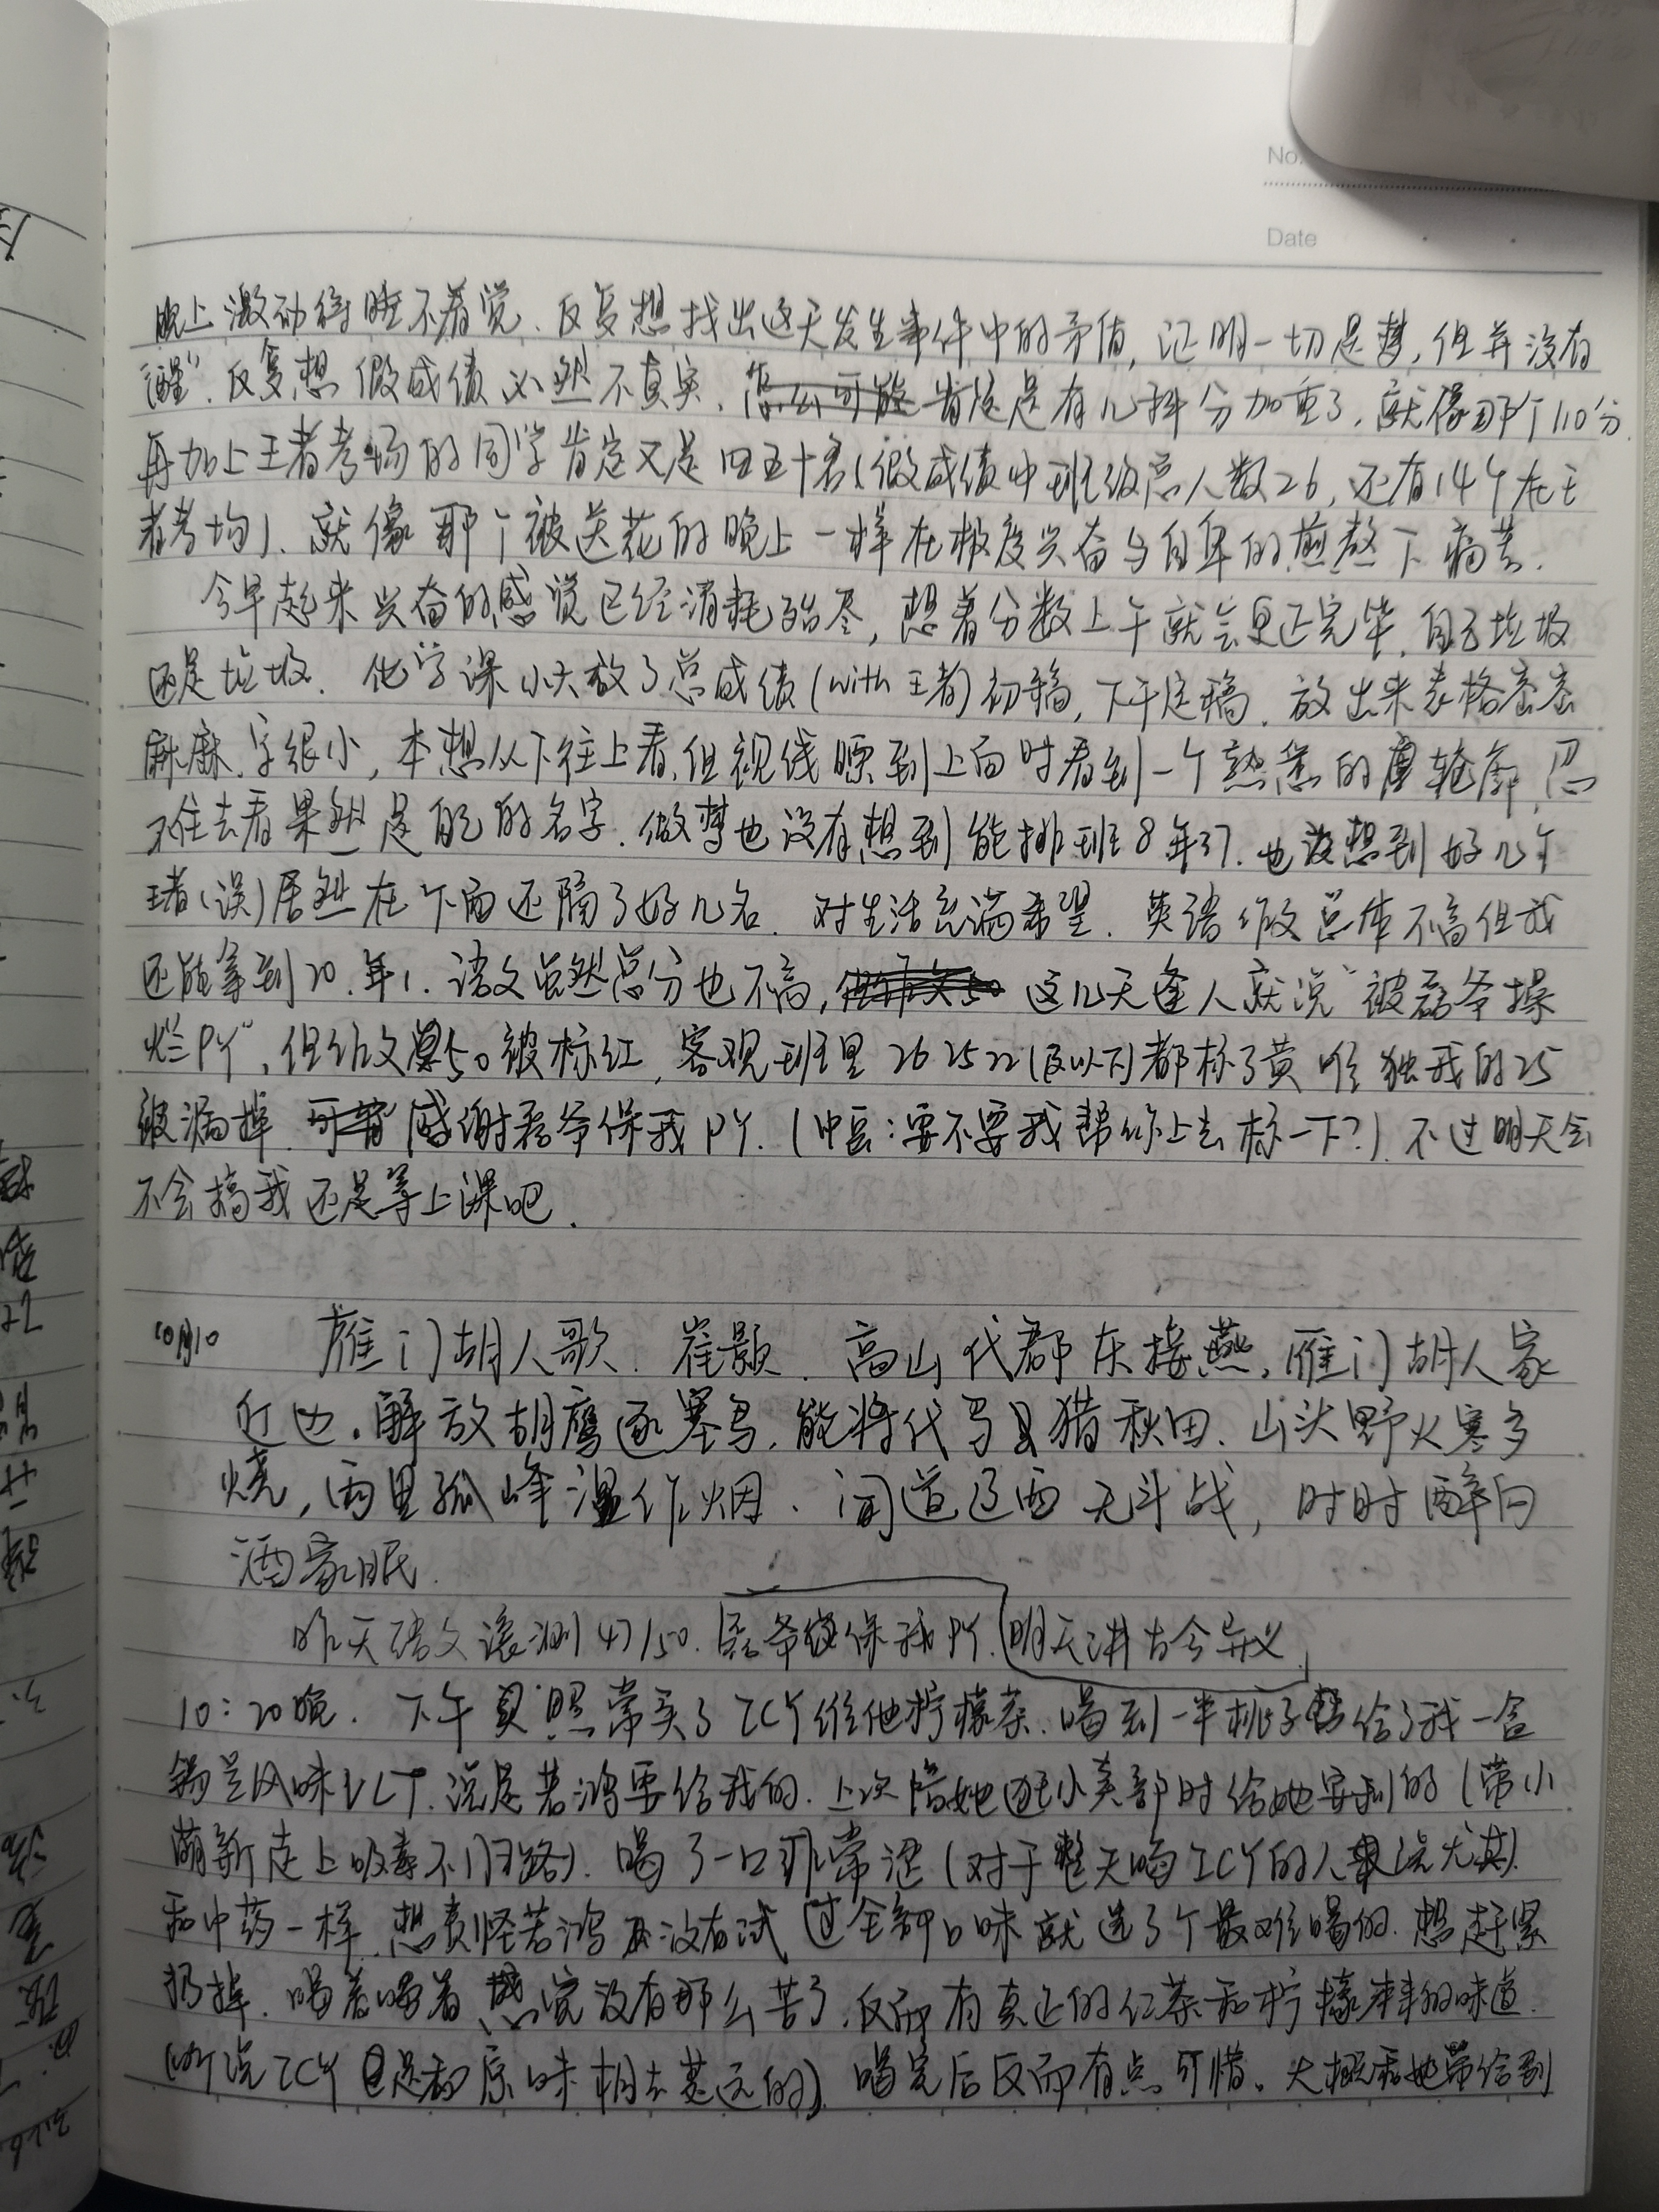 No.
Date
晚上激动得睡不着觉、反复想找出这天发生事件中的矛盾，证明一切是梦，但并没有
“醒”。反复想假成绩必然不真实、怎么可能肯定是有几科分加重了，就像那个110分
再加上王者考场的同学肯定又是四五十名（假成绩中班级总人数26，还有14个在王
者考场）、就像那个被送花的晚上一样在极度兴奋与自卑的煎熬下痛苦.
今早起来兴奋的感觉已经消耗殆尽，想着分数上午就会更正完毕，自己垃圾
还是垃圾. 化学课小大放了总成绩（with 王者）初稿，下午定稿. 放出来表格密密
麻麻、字很小，本想从下往上看，但视线瞟到上面时看到一个熟悉的轮廓，忍
不住去看果然是自己的名字. 做梦也没有想到能排班8年37. 也没想到好几个
王者（误）居然在下面还隔了好几名. 对生活充满希望. 英语作文总体不高但我
还能拿到20. 年1. 语文虽然总分也不高， 这几天逢人就说“被磊爷操
烂PY”，但作文50被标红，客观班里26 25 22（及以下）都标了黄唯独我的25
被漏掉 感谢磊爷保我PY.（中豆：要不要我帮你上去标一下？）不过明天会
不会搞我还是等上课吧.
10月10 雁门胡人歌. 崔颢. 高山代郡东接燕，雁门胡人家
近边. 解放胡鹰逐塞鸟，能将代马猎秋田. 山头野火寒多
烧，雨里孤峰湿作烟. 闻道辽西无斗战，时时醉向
酒家眠.
昨天语文滚测47/50. 磊爷保我PY. 明天讲古今异义
10：20晚. 下午照常买了ZCY维他柠檬茶. 喝到一半桃子给了我一盒
锡兰风味VLT. 说是若鸿要给我的. 上次陪她逛小卖部时给她安利的（带小
萌新走上吸毒不归路）. 喝了一口非常涩（对于整天喝ZCY的人来说尤其）.
和中药一样. 想责怪若鸿没有试过全部口味就选了个最难喝的. 想赶紧
扔掉. 喝着喝着感觉没有那么苦了. 反而有真正的红茶和柠檬本来的味道.
（所说ZCY是和原味相去甚远的）. 喝完后反而有点可惜. 大概和她带给到